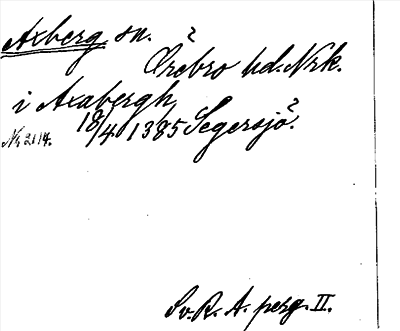 Axberg sn. ?
Örebro hd. Nrk.
i Axabergh
18/4 1385 Segersjö?.
Nr 2114.
Sv. R. A. perg. II.